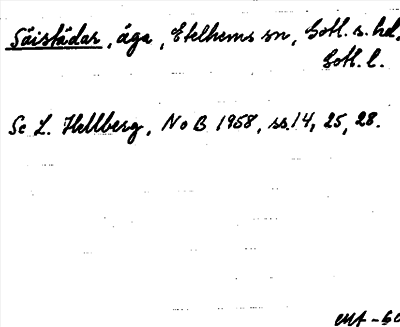 Säistädar, äga, Etelhems sn, Gotl. s. hd,
Gotl. l.
Se L. Hellberg, NoB 1958, ss. 14, 25, 28.